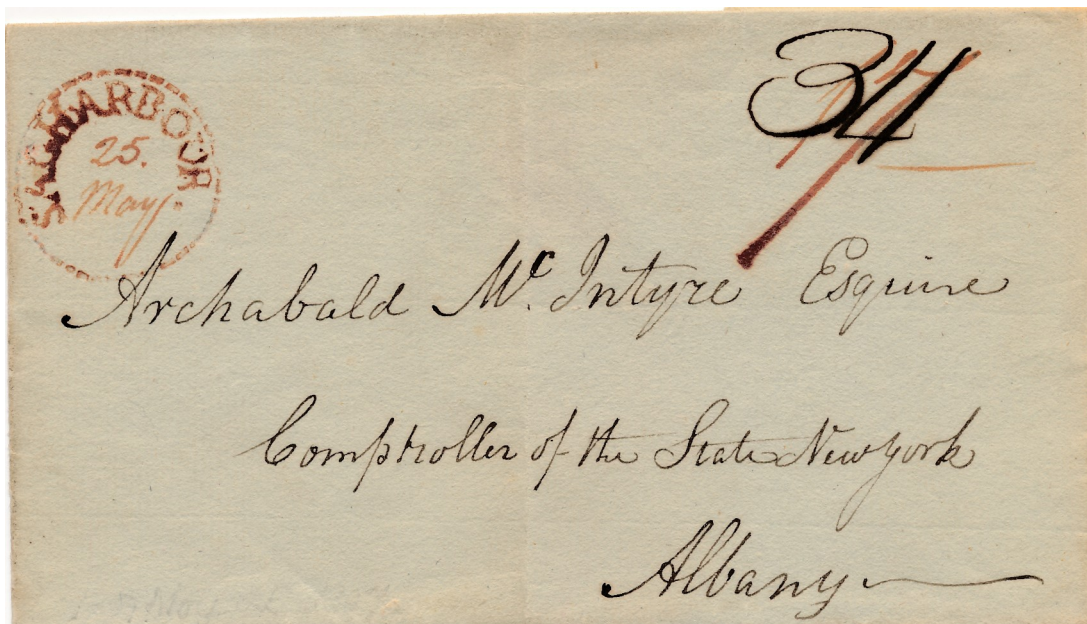 SAG HARBOUR
25.
May.
34
17
Archabald Mc. Intyre Esquire
Comptroller of the State New york
Albany